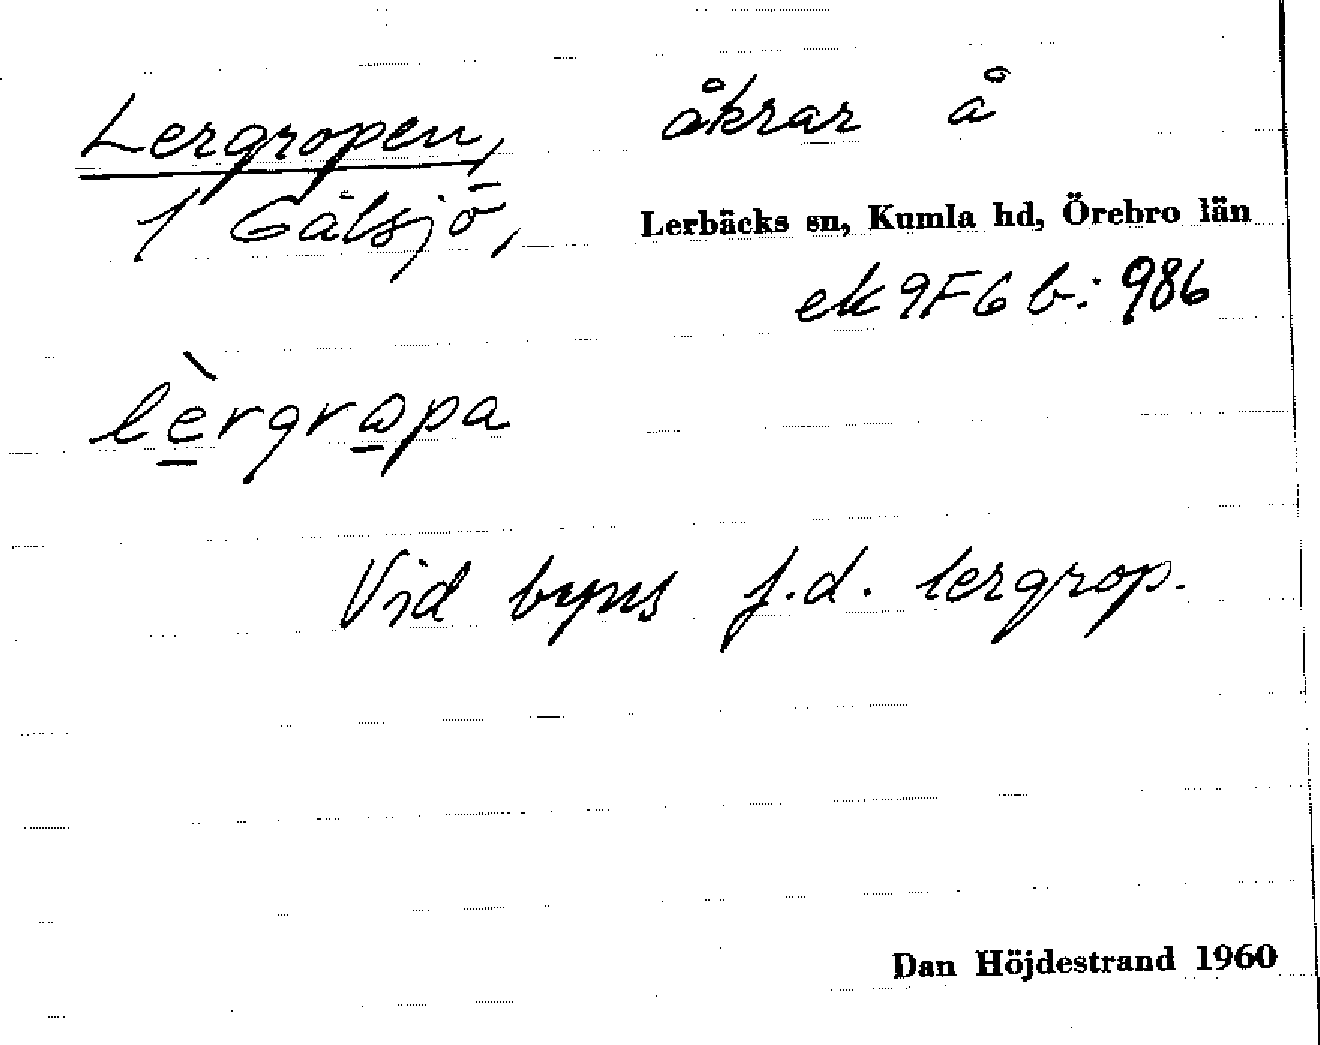 Lergropen, åkrar å
1 Gälsjö, Lerbäcks sn, Kumla hd, Örebro län
ek 9F6 b: 986
lèrgrωpa
Vid byns f.d. lergrop.
Dan Höjdestrand 1960